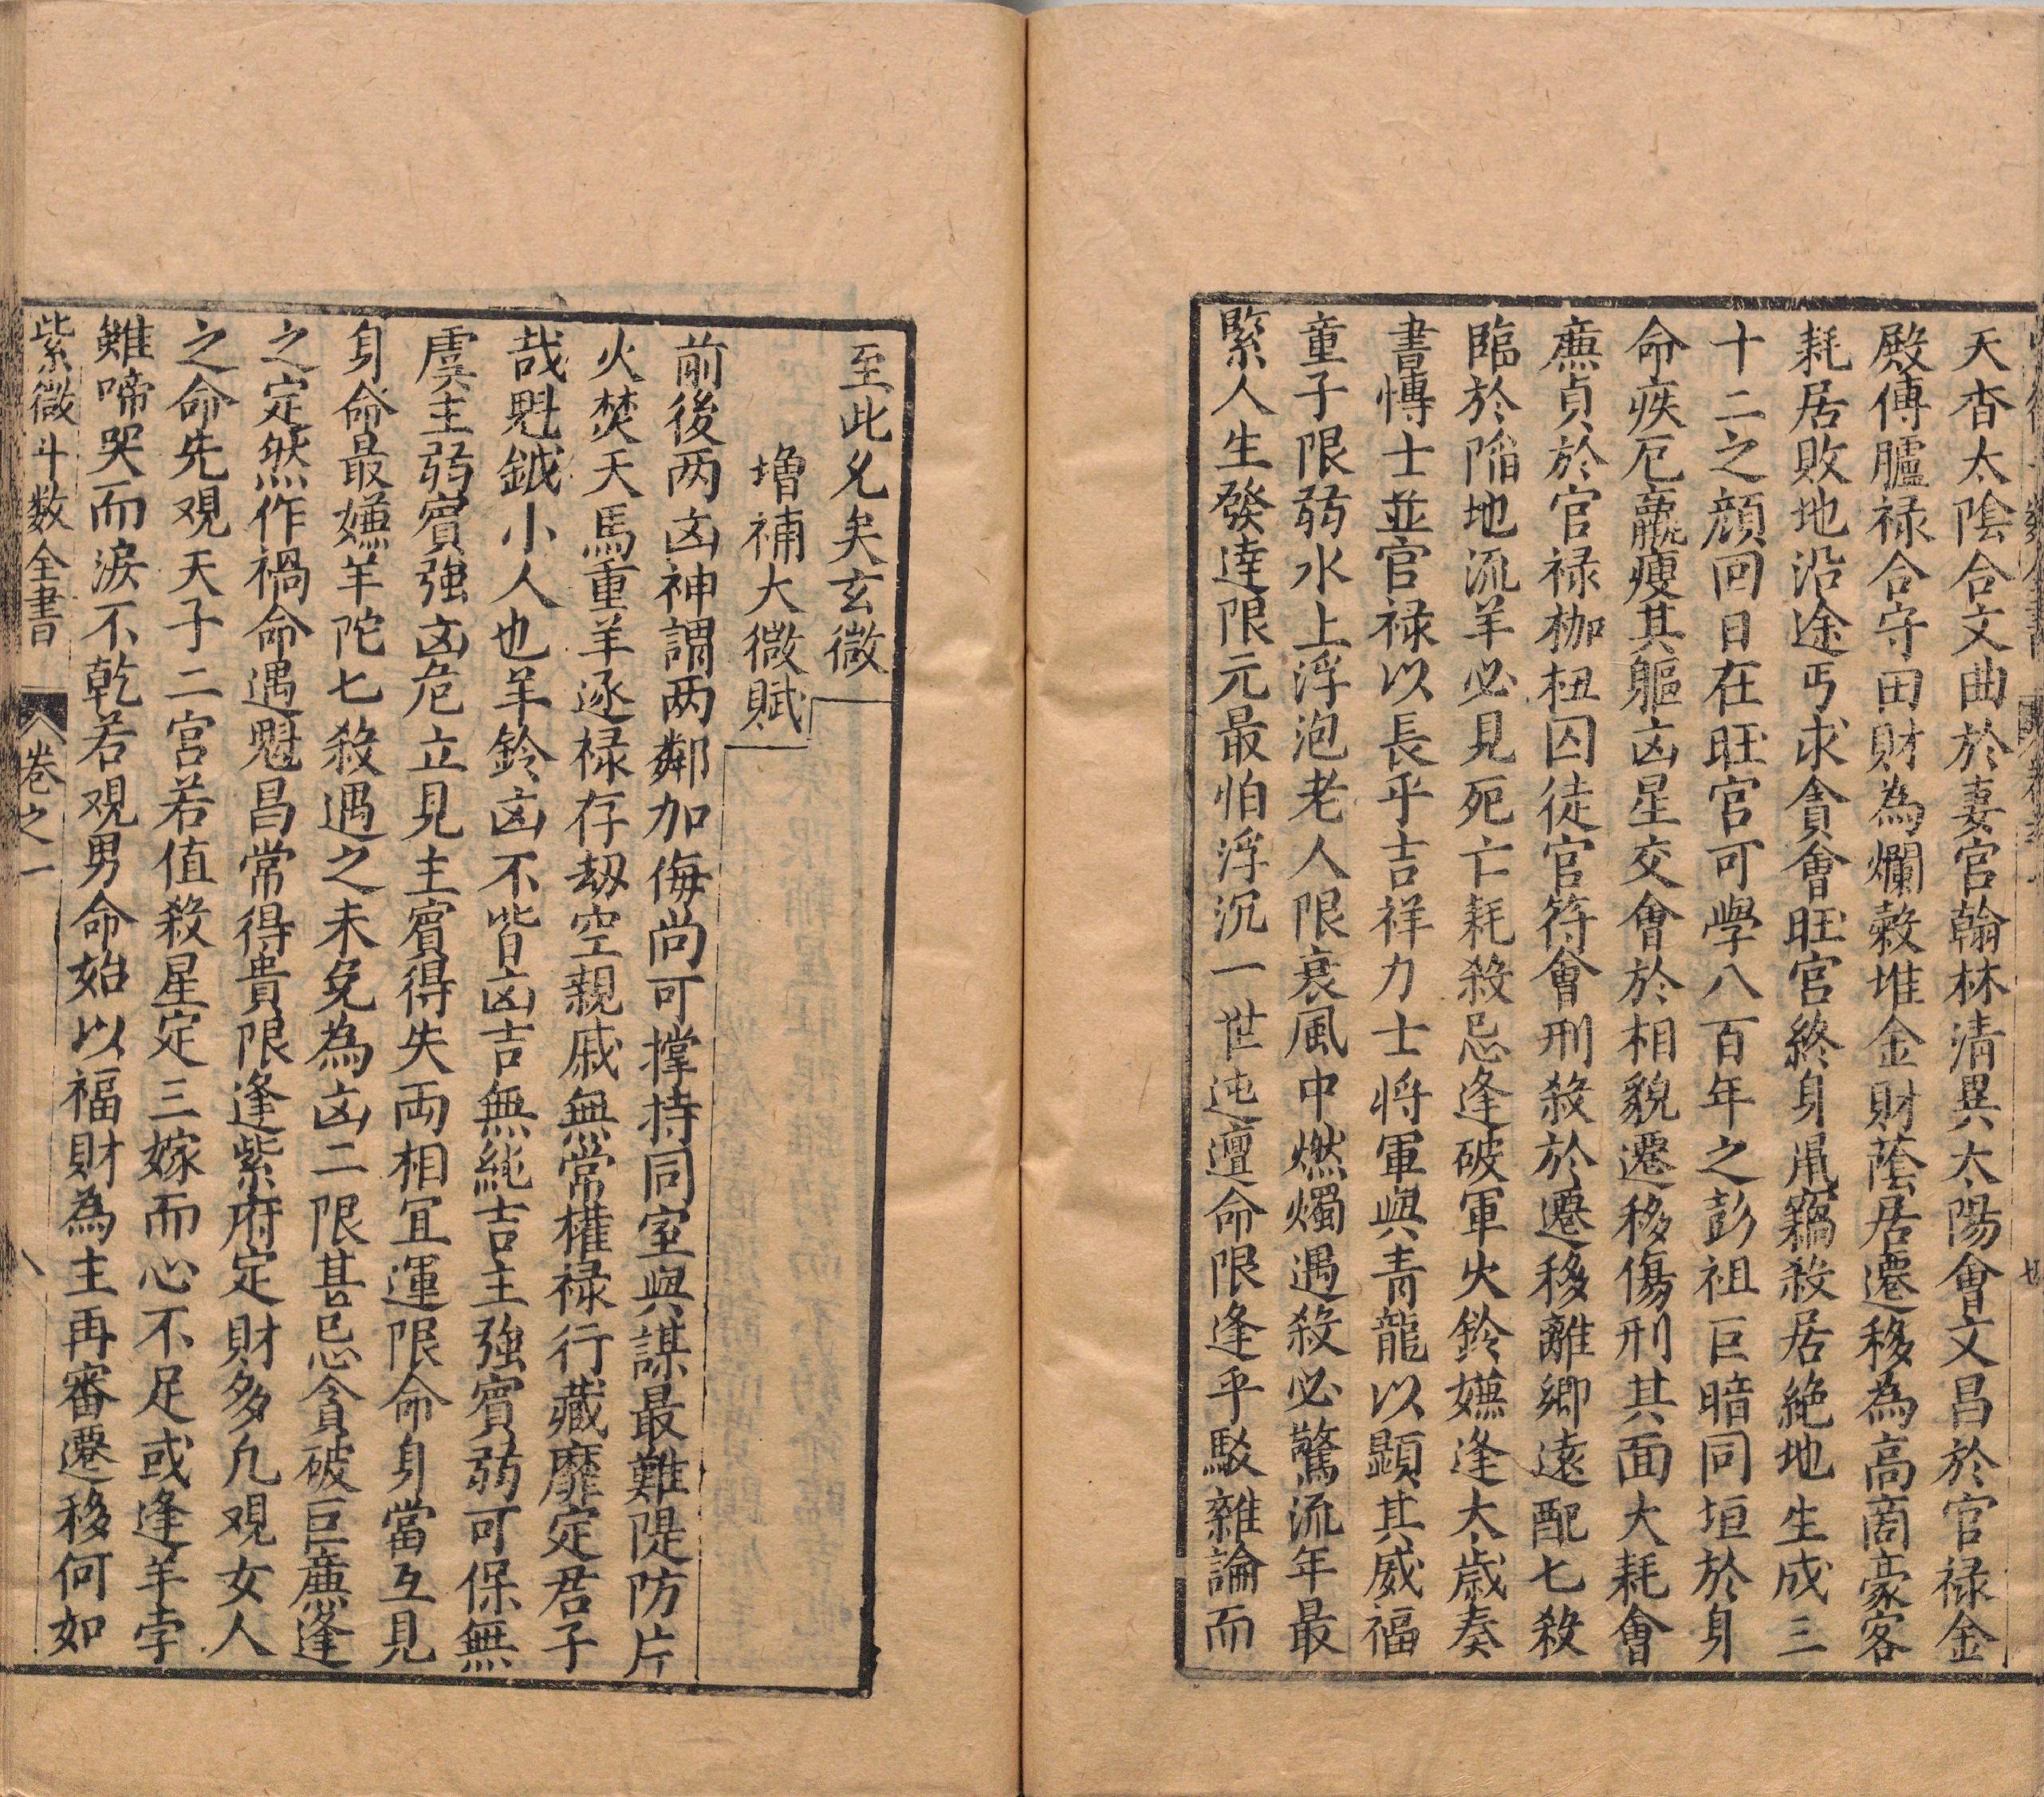 天杳太陰合文曲於妻宮翰林清異太陽會文昌於官禄金
殿傳臚禄合守田財為爛糓堆金財蔭居遷移為高商豪客
耗居敗地沿途丐求貪會旺宮終身鼠竊殺居絶地生成三
十二之顔回日在旺宮可學八百年之彭祖巨暗同垣於身
命疾厄羸瘦其軀凶星交會於相貌遷移傷刑其面大耗會
亷貞於官禄枷杻囚徒官符會刑殺於遷移離卿遠配七殺
臨於陥地流羊必見死亡耗殺忌逢破軍火鈴嫌逢太歳奏
書慱士並官禄以長乎吉祥力士将軍與青龍以顯其威福
童子限弱水上浮泡老人限衰風中燃燭遇殺必驚流年最
緊人生發達限元最怕浮沉一世迍邅命限逢乎駁雜論而
至此允矣玄微
増補太微賦
前後两凶神謂两鄰加侮尚可撑持同室與謀最難隄防片
火焚天馬重羊逐禄存刼空親戚無常權禄行藏靡定君子
哉魁鉞小人也羊鈴凶不皆凶吉無純吉主強賓弱可保無
虞主弱賓強凶危立見主賓得失両相宜運限命身當互見
身命最嫌羊陀七殺遇之未免為凶二限甚忌貪破巨亷逢
之定然作禍命遇魁昌常得貴限逢紫府定財多凢观女人
之命先观夭子二宮若值殺星定三嫁而心不足或逢羊孛
雖啼哭而淚不乾若观男命始以福財為主再審遷移何如
紫微斗数全書 卷之一